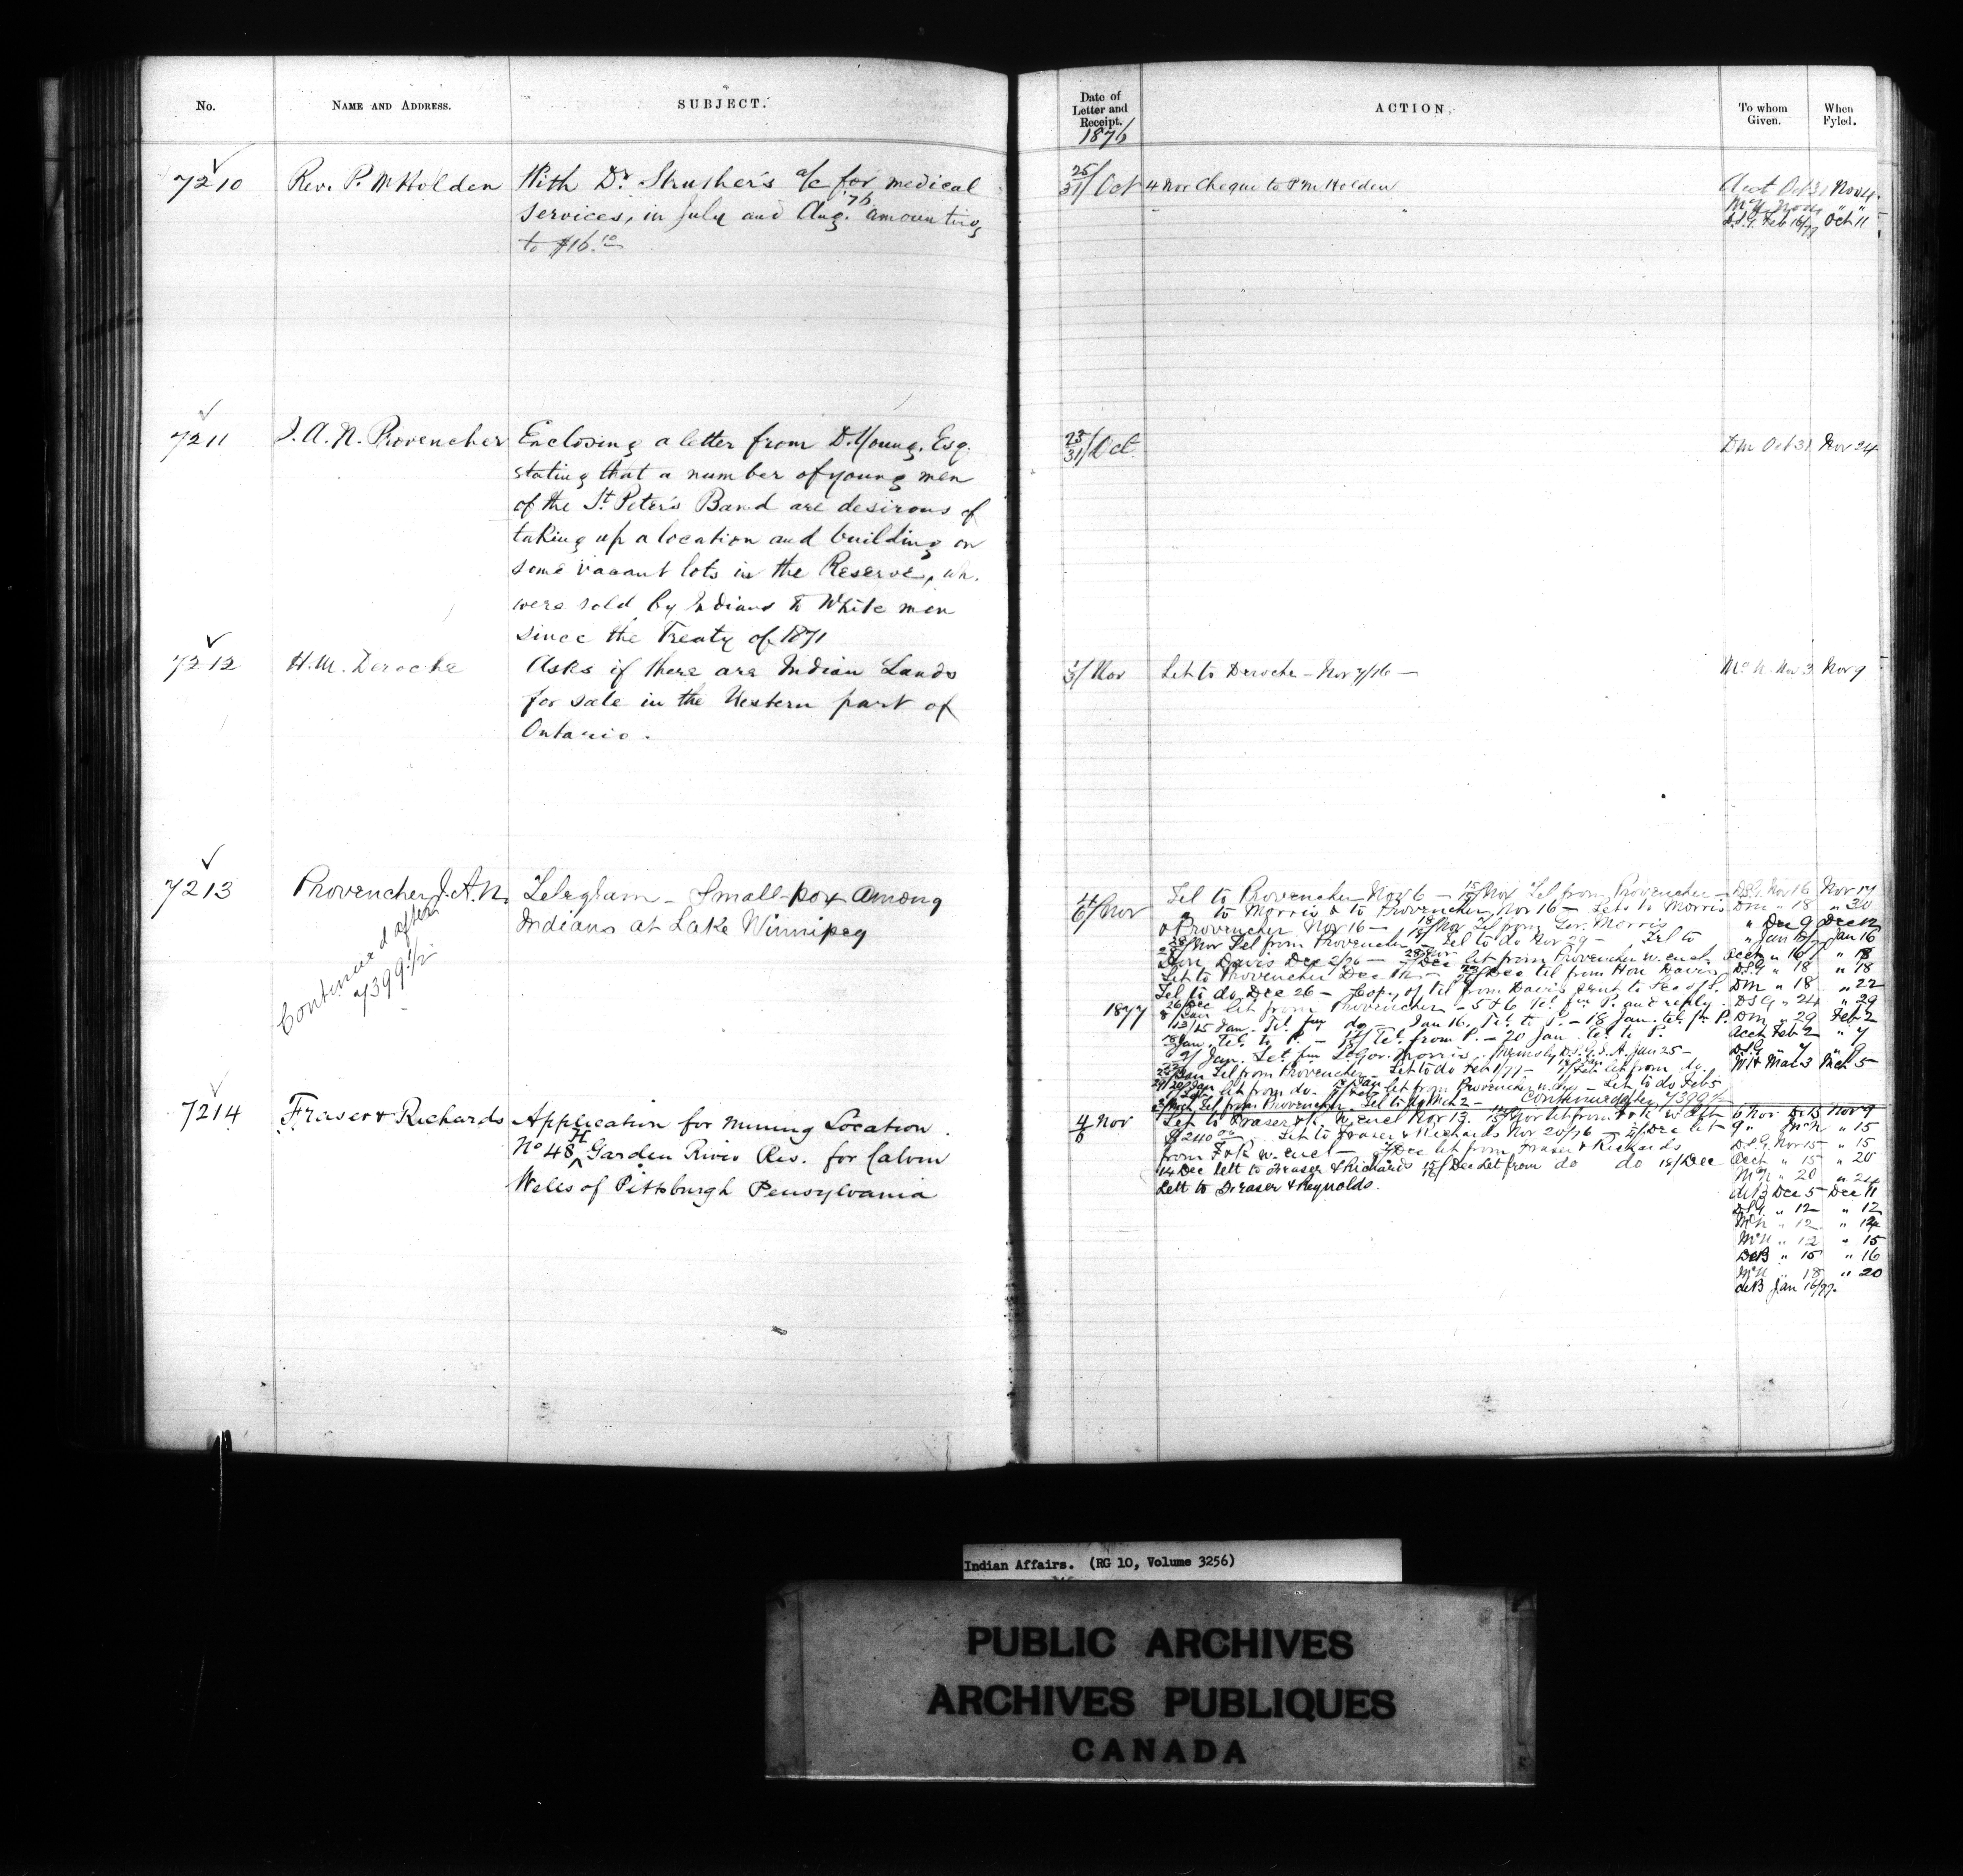 No. NAME AND ADDRESS. SUBJECT.
7210 Rev. P. McHolden With Dr. Struther's a/c for medical
services, in July and Aug. 76 amounting
to $16.10
7211 J. A. N. Provencher Enclosing a letter from D. Young, Esq.
stating that a number of young men
of the St Peter's Band are desirous of
taking up a location and building on
some vacant lots in the Reserve, wh.
were sold by Indians to White men
since the Treaty of 1871
7212 H. M. Deroche Asks if there are Indian Lands
for sale in the Western part of
Ontario.
7213 Provencher J. A. N. Telegram - Small-pox among
Indians at Lake Winnipeg
Continued after
7399 1/2
7214 Fraser & Richards Application for Mining Location
No 48 H Garden River Res. for Calvin
Wells of Pittsburgh Pensylvania
Date of Letter and Receipt. ACTION. To whom Given. When Fyled.
1876
25/31 Oct 4 Nov Cheque to P Mc Holden Acct Oct 31 Nov 4
D.S.G. Feb 16/77 Oct 11
23/31 Oct DM Oct 31 Nov 24
1/3 Nov Let to Deroche - Nov 7/76 - McN. Nov 3 Nov 9
4/6 Nov Tel to Provencher Nov 6 - 15/ Nov Tel from Provencher - DSG Nov 16 Nov 17
" to Morris & to Provencher Nov 16 - Let to Morris DM " 18 " 30
& Provencher Nov 16 - Nov Tel from Gov. Morris " Dec 9 Dec 12
Nov Tel from Provencher - Tel to do Nov 29 - Tel to " Jan Jan 16
Hon. Davis Dec 2/76 - Dec let from Provencher w. encl. Acct " 16 " 18
Let to Provencher Dec - Dec tel from Hon Davis DSG " 18 " 18
Tel to do Dec 26 - Copy of tel from Davis sent to Sec of S. DM " 18 " 22
1877 26/Dec let from Provencher - 5 & 6 Tel fm P. and reply. DSG " 24 " 29
13/15 Jan. Tel. fm do - Jan 16. Tel. to P. - 18 Jan. tel. fm P. DM " 29 Feb 2
Jan. tel. to P. - Tel. from P. - 20 Jan. tel. to P. Acct Feb 2 " 7
Jan. Let. fm Lt Gov. Morris. D.S.G.I.A. Jan 25 - DSG " 7 " 9
Jan Tel from Provencher - Let to do Feb 1/77 - let from do. WH Mar 3 Mch 5
let from do. let from Provencher - Let to do Feb 5
Tel from Provencher. Tel to do Mch 2 - Continued after 7399 1/2
4/6 Nov Let to Fraser & R. w. encl Nov 13. Nov let from F & R w dft 6 Nov deB Nov 9
$240.00 Let to Fraser & Richards Nov 20/76 - Dec let 9 " McN " 15
from F & R w. encl - Dec let from Fraser & Richards DSG Nov 15 " 15
14 Dec lett to Fraser & Richards 15/ Dec Let from do do 18/ Dec Acct " 15 " 20
Lett to Fraser & Reynolds. McN " 20 " 24
deB Dec 5 Dec 11
DSG " 12 " 12
McN " 12 " 14
McN " 12 " 15
DeB " 15 " 16
McN " 18 " 20
deB Jan 16/77.
Indian Affairs. (RG 10, Volume 3256)
PUBLIC ARCHIVES
ARCHIVES PUBLIQUES
CANADA